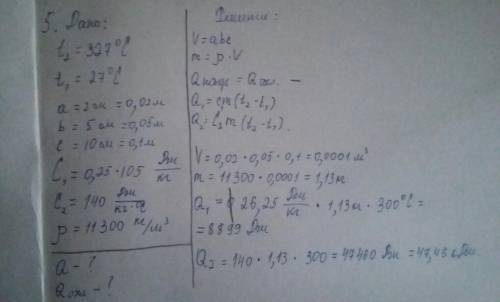 5. Дано:
t₂ = 327°C
t₁ = 27°C
a = 2см = 0,02м
b = 5см = 0,05м
c = 10см = 0,1м
C₁ = 0,25·105 Дж/кг
C₂ = 140 Дж/кг·°C
ρ = 11300 кг/м³
Q - ?
Qохл - ?
Решение:
V = abc
m = ρ·V
Qнагр = Qохл. —
Q₁ = cm(t₂-t₁)
Q₂ = C₂m(t₂-t₁).
V = 0,02·0,05·0,1 = 0,0001 м³
m = 11300·0,0001 = 1,13кг
Q₁ = 26,25 Дж/кг · 1,13кг · 300°C =
= 8899 Дж
Q₂ = 140·1,13·300 = 47460 Дж = 47,46 кДж